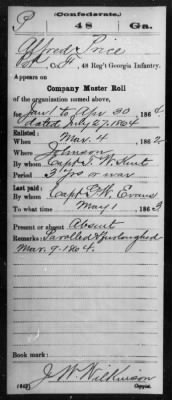 (Confederate.)
P 48 Ga.
Alfred Price
Pvt, Co. F, 48 Reg't Georgia Infantry.
Appears on
Company Muster Roll
of the organization named above,
for Jan 1 to Apr 30, 1864.
dated July 27, 1864
Enlisted:
When Mar. 4, 1862
Where Johnson
By whom Capt. T. W. Kent
Period 3 yrs or war
Last paid:
By whom Capt. G. W. Evans
To what time May 1, 1863
Present or absent Absent
Remarks: Paroled & furloughed
Mar. 9-1864.
Book mark:
J. W. Wilkinson
(642) Copyist.